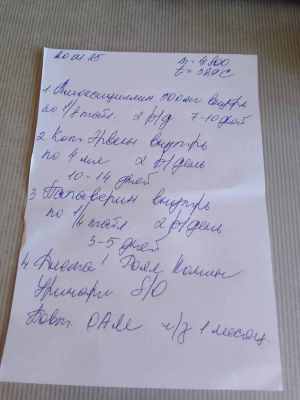 20.01.25
m = 4.900
t = 38.9 C
1. Амоксициллин 500мг внутрь
по 1/8 табл 2 р/д 7-10 дней
2. Кот Эрвин внутрь
по 4 мл 2 р/день
10-14 дней
3. Папаверин внутрь
по 1/4 табл 2 р/день
3-5 дней
4. Диета! Роял Канин
Уринари S/O
Повт. ОАМ ч/з 1 месяц